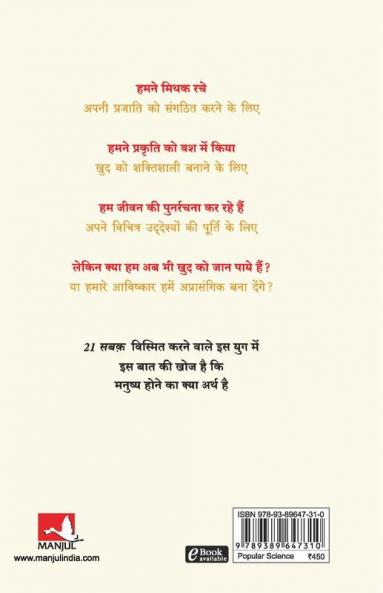 हमने मिथक रचे
अपनी प्रजाति को संगठित करने के लिए
हमने प्रकृति को वश में किया
ख़ुद को शक्तिशाली बनाने के लिए
हम जीवन की पुनर्रचना कर रहे हैं
अपने विचित्र उद्देश्यों की पूर्ति के लिए
लेकिन क्या हम अब भी ख़ुद को जान पाये हैं?
या हमारे आविष्कार हमें अप्रासंगिक बना देंगे?
21 सबक़ विस्मित करने वाले इस युग में
इस बात की खोज है कि
मनुष्य होने का क्या अर्थ है
MANJUL
www.manjulindia.com
eBook
available
ISBN 978-93-89647-31-0
9789389647310
Popular Science ₹450